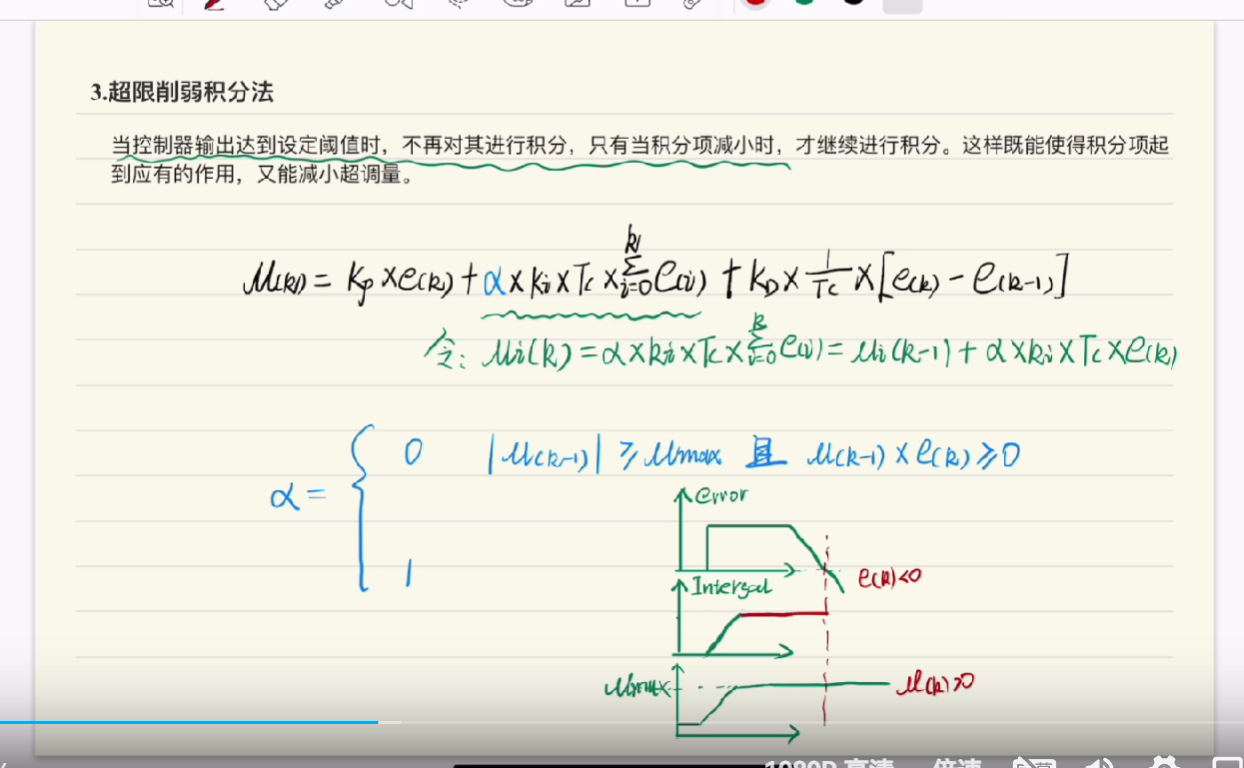 3.超限削弱积分法
当控制器输出达到设定阈值时，不再对其进行积分，只有当积分项减小时，才继续进行积分。这样既能使得积分项起
到应有的作用，又能减小超调量。
u(k) = Kp×e(k) + α×Ki×Tc×∑_{i=0}^{k} e(i) + KD×1/Tc×[e(k) - e(k-1)]
令: ui(k) = α×Ki×Tc×∑_{i=0}^{k} e(i) = ui(k-1) + α×Ki×Tc×e(k)
α = { 0 |u(k-1)| ≥ umax 且 u(k-1)×e(k) ≥ 0
1
error
e(k)<0
Intergal
umax
u(k)>0
1080P 高清 倍速